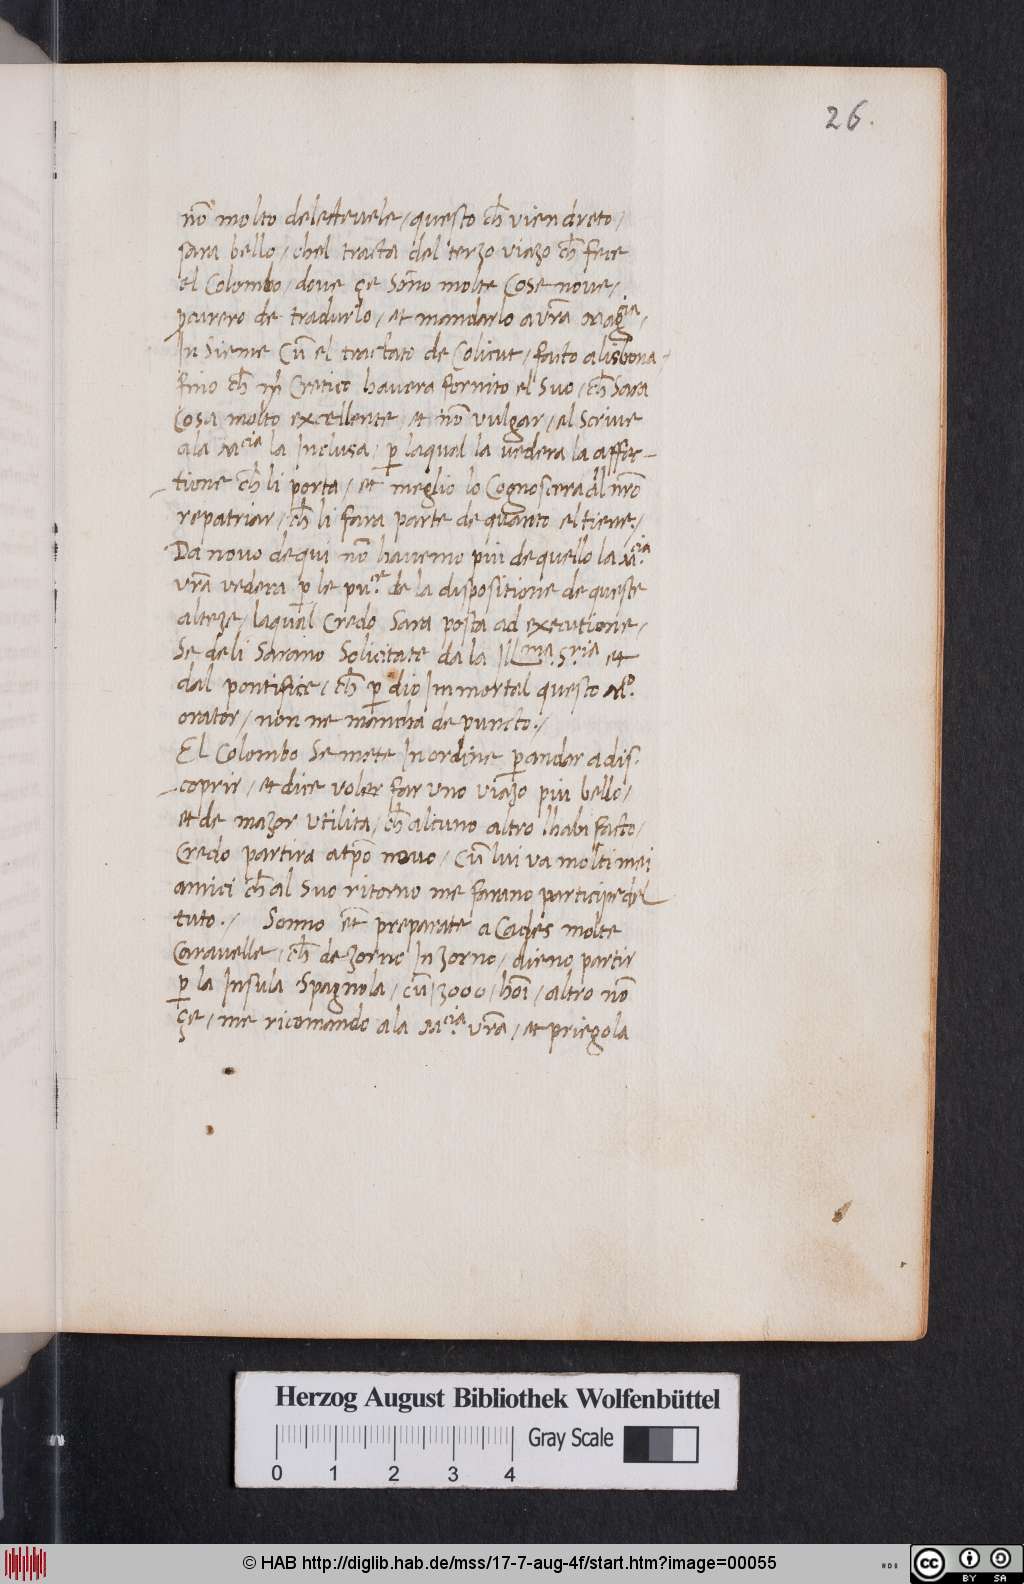 26.
nõ molto deleteuele / questo ch̃ vien dreto /
sara bello / chel tracta del terzo viazo ch̃ fece
el Colombo / doue çe Sõno molte Cose noue /
p̱curero de tradurlo / et mandarlo a vr̃a Magcia /
In Sieme Cũ el tractato de Colicut / facto a lisbona /
fino ch̃ mẽ Cretico hauera fornito el Suo / ch̃ Sara
Cosa molto excellente / et nõ vulgar / el Scriue
a la Mcia la Inclusa / p̱ laqual la vedera la affec-
tione ch̃ li porta / et meglio lo Cognoscera al nr̃o
repatriar / ch̃ li fara parte de quanto el tiene /
Da nouo de qui nõ hauemo piu de quello la Mcia
vr̃a vedera p̱ le pu.ce de la dispositione de queste
alteze / laqual Credo Sara posta ad executione /
Se deli Sarano Solicitate da la Illma. Sria et
dal pontifice / ch̃ p̱ dio Immortal questo Mco.
orator / non ne mancha de puncto. /
El Colombo Se mete In ordine p̱ andar a dis-
coprir / et dice voler far uno viazo piu bello /
et de mazor vtilita / ch̃ alcuno altro lhabi facto /
Credo partira a tp̃o nouo / Cũ lui va molti mei
amici ch̃ al Suo ritorno me farano participe del
tuto. / Sonno et̃ preparate a Cades molte
Carauelle / ch̃ de zorno In zorno / dieno partir
p̱ la Insula Spagnola / cũ 3000 / hoĩ / altro nõ
çe / me ricomando a la Mcia vr̃a / et priegola
Herzog August Bibliothek Wolfenbüttel
0 1 2 3 4
Gray Scale
© HAB http://diglib.hab.de/mss/17-7-aug-4f/start.htm?image=00055
HAB
cc BY SA